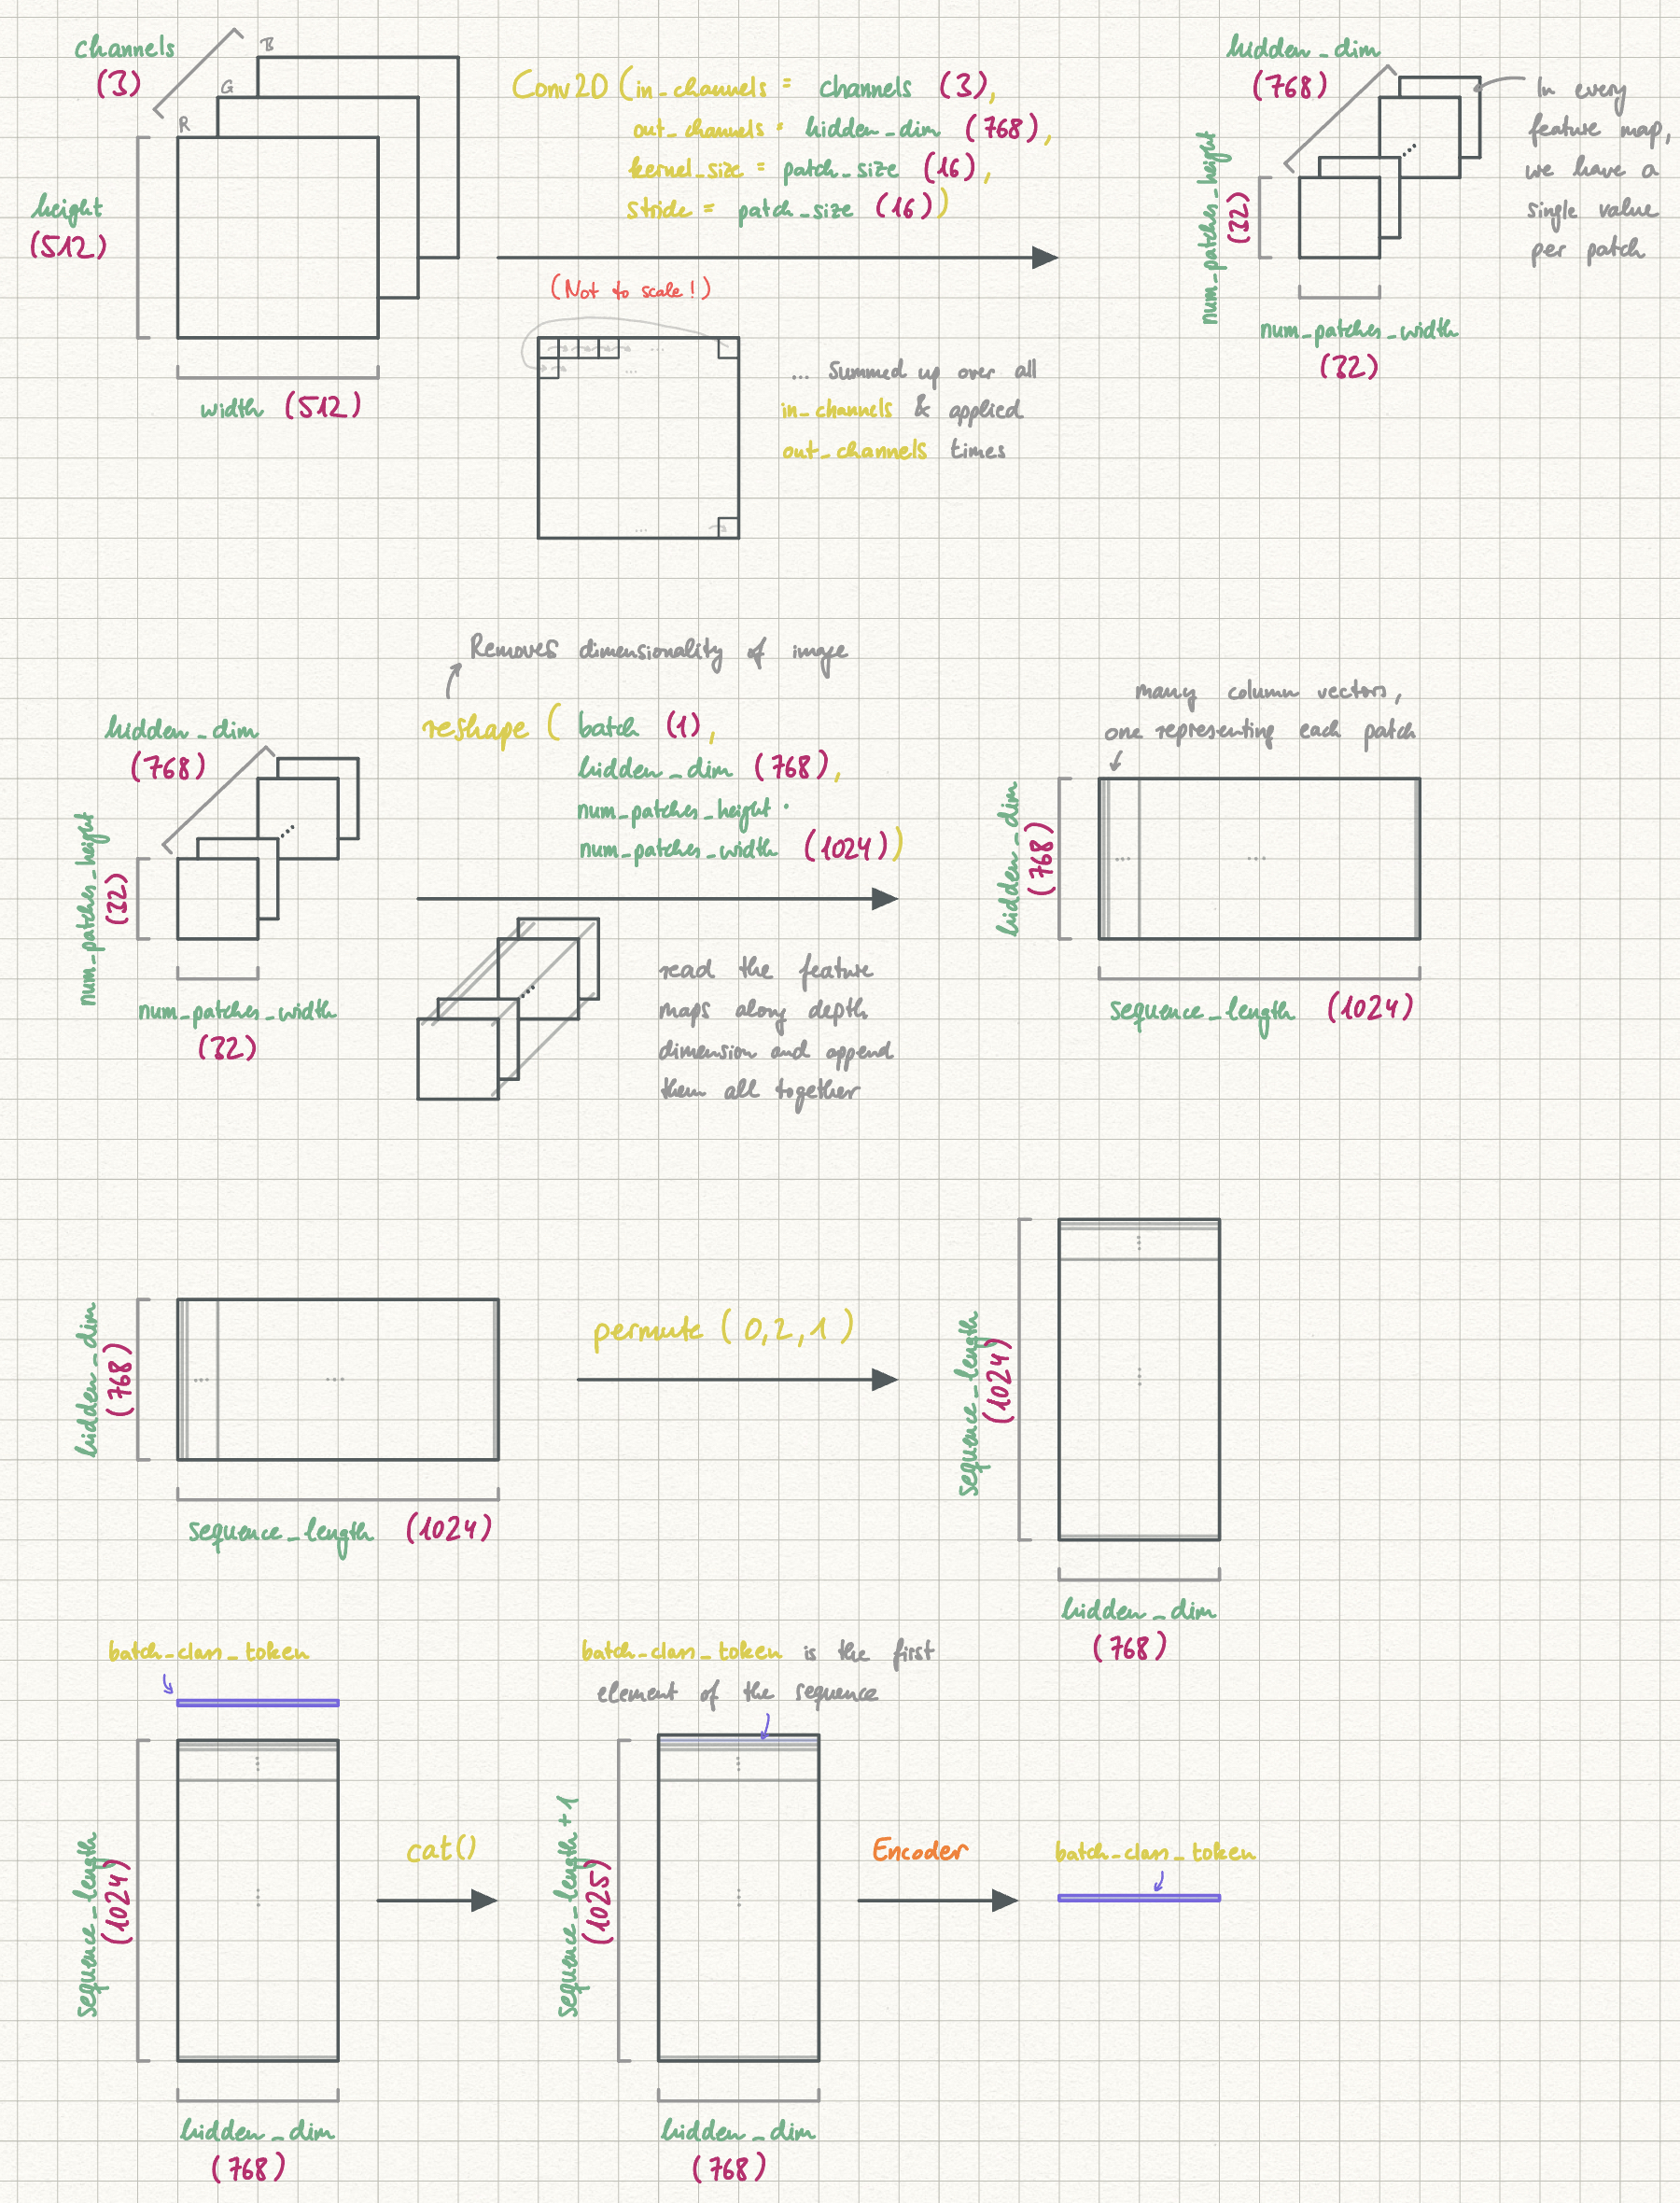 channels
(3)
R
G
B
height
(512)
width (512)
Conv2D (in_channels = channels (3),
out_channels = hidden_dim (768),
kernel_size = patch_size (16),
stride = patch_size (16))
(Not to scale!)
... summed up over all
in_channels & applied
out_channels times
hidden_dim
(768)
num_patches_height
(32)
num_patches_width
(32)
In every
feature map,
we have a
single value
per patch
Removes dimensionality of image
reshape ( batch (1),
hidden_dim (768),
num_patches_height ·
num_patches_width (1024))
hidden_dim
(768)
num_patches_height
(32)
num_patches_width
(32)
read the feature
maps along depth
dimension and append
them all together
many column vectors,
one representing each patch
hidden_dim
(768)
sequence_length (1024)
hidden_dim
(768)
sequence_length (1024)
permute (0,2,1)
sequence_length
(1024)
hidden_dim
(768)
batch_class_token
sequence_length
(1024)
hidden_dim
(768)
cat()
batch_class_token is the first
element of the sequence
sequence_length + 1
(1025)
hidden_dim
(768)
Encoder
batch_class_token